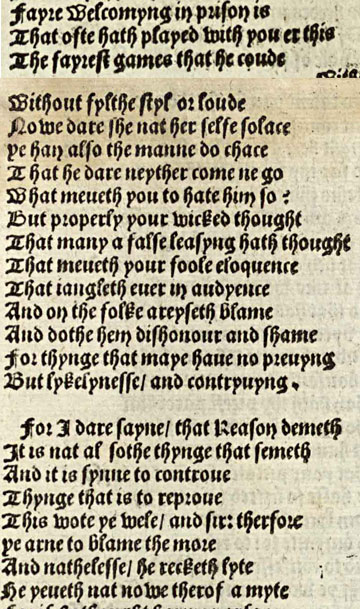 Fayre Welcomyng in prison is
That ofte hath played with you er this
The fayrest games that he coude
Without fylthe styl or loude
Nowe dare she nat her selfe solace
ye han also the manne do chace
That he dare neyther come ne go
What meueth you to hate him so?
But properly your wicked thought
That many a false leasyng hath thought
That meueth your foole eloquence
That iangleth euer in audyence
And on the folke areyseth blame
And dothe hem dishonour and shame
For thynge that maye haue no preuyng
But lykelynesse/ and contryuyng.
For I dare sayne/ that Reason demeth
It is nat al sothe thynge that semeth
And it is synne to controue
Thynge that is to reproue
This wote ye wele/ and sir: therfore
ye arne to blame the more
And nathelesse/ he recketh lyte
He yeueth nat nowe therof a myte